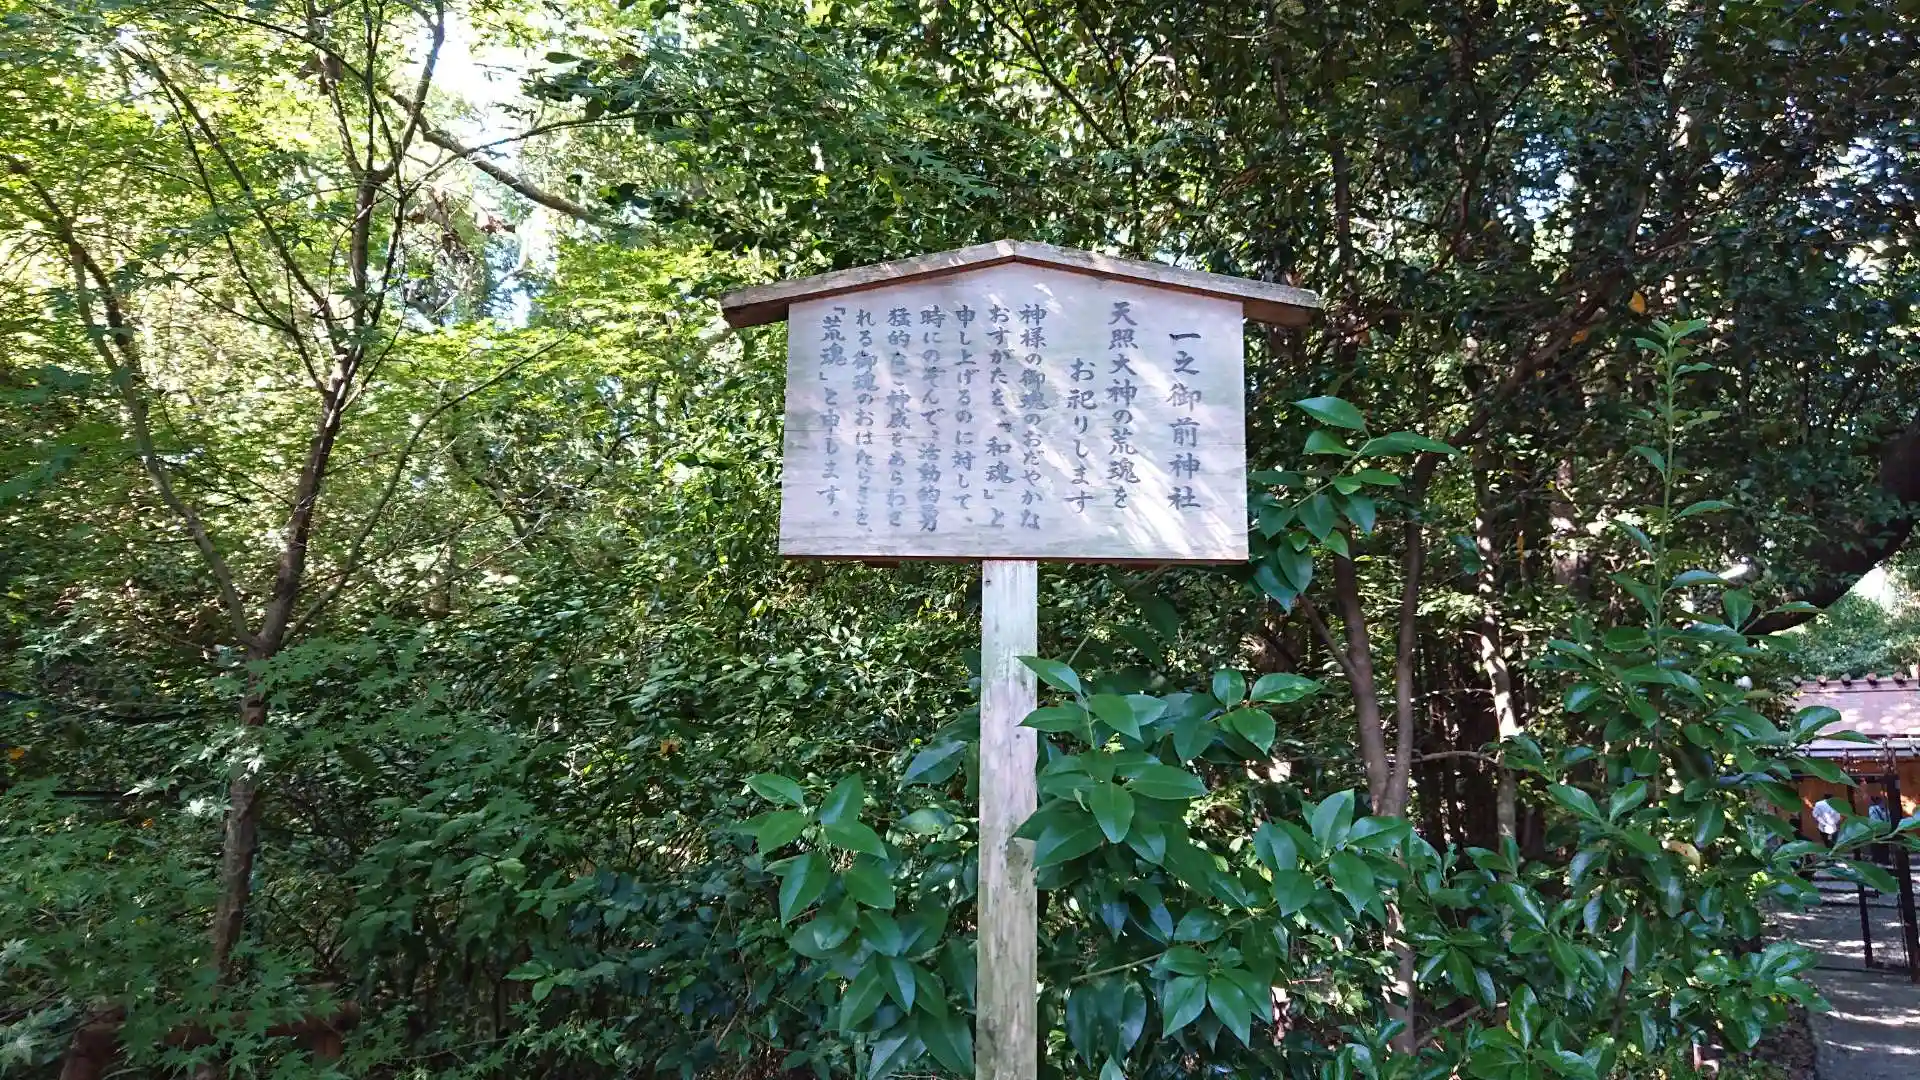 一之御前神社
天照大神の荒魂を
お祀りします
神様の御魂のおだやかな
おすがたを、「和魂」と
申し上げるのに対して、
時にのぞんで、活動的勇
猛的に神威をあらわさ
れる御魂のおはたらきを、
「荒魂」と申します。